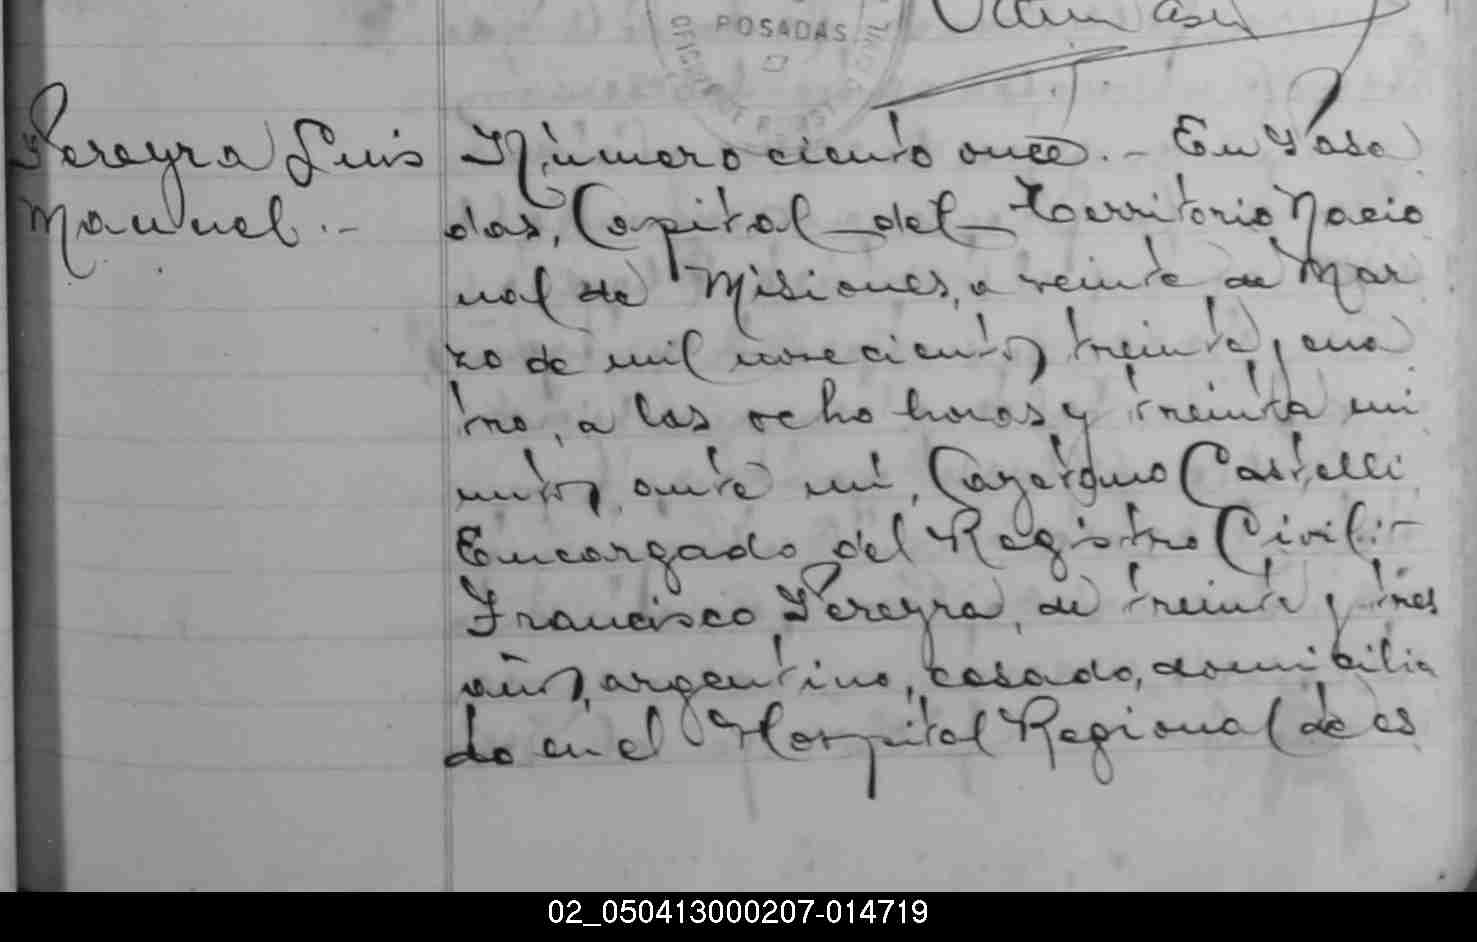 POSADAS
Pereyra Luis
Manuel.-
Número ciento once.- En Posa
das, Capital del Territorio Nacio
nal de Misiones, a veinte de Mar
zo de mil novecientos treinta y cua
tro, a las ocho horas y treinta mi
nutos, ante mí, Cayetano Castelli
Encargado del Registro Civil:-
Francisco Pereyra, de treinta y tres
años, argentino, casado, domicilia
do en el Hospital Regional de es
02_050413000207-014719